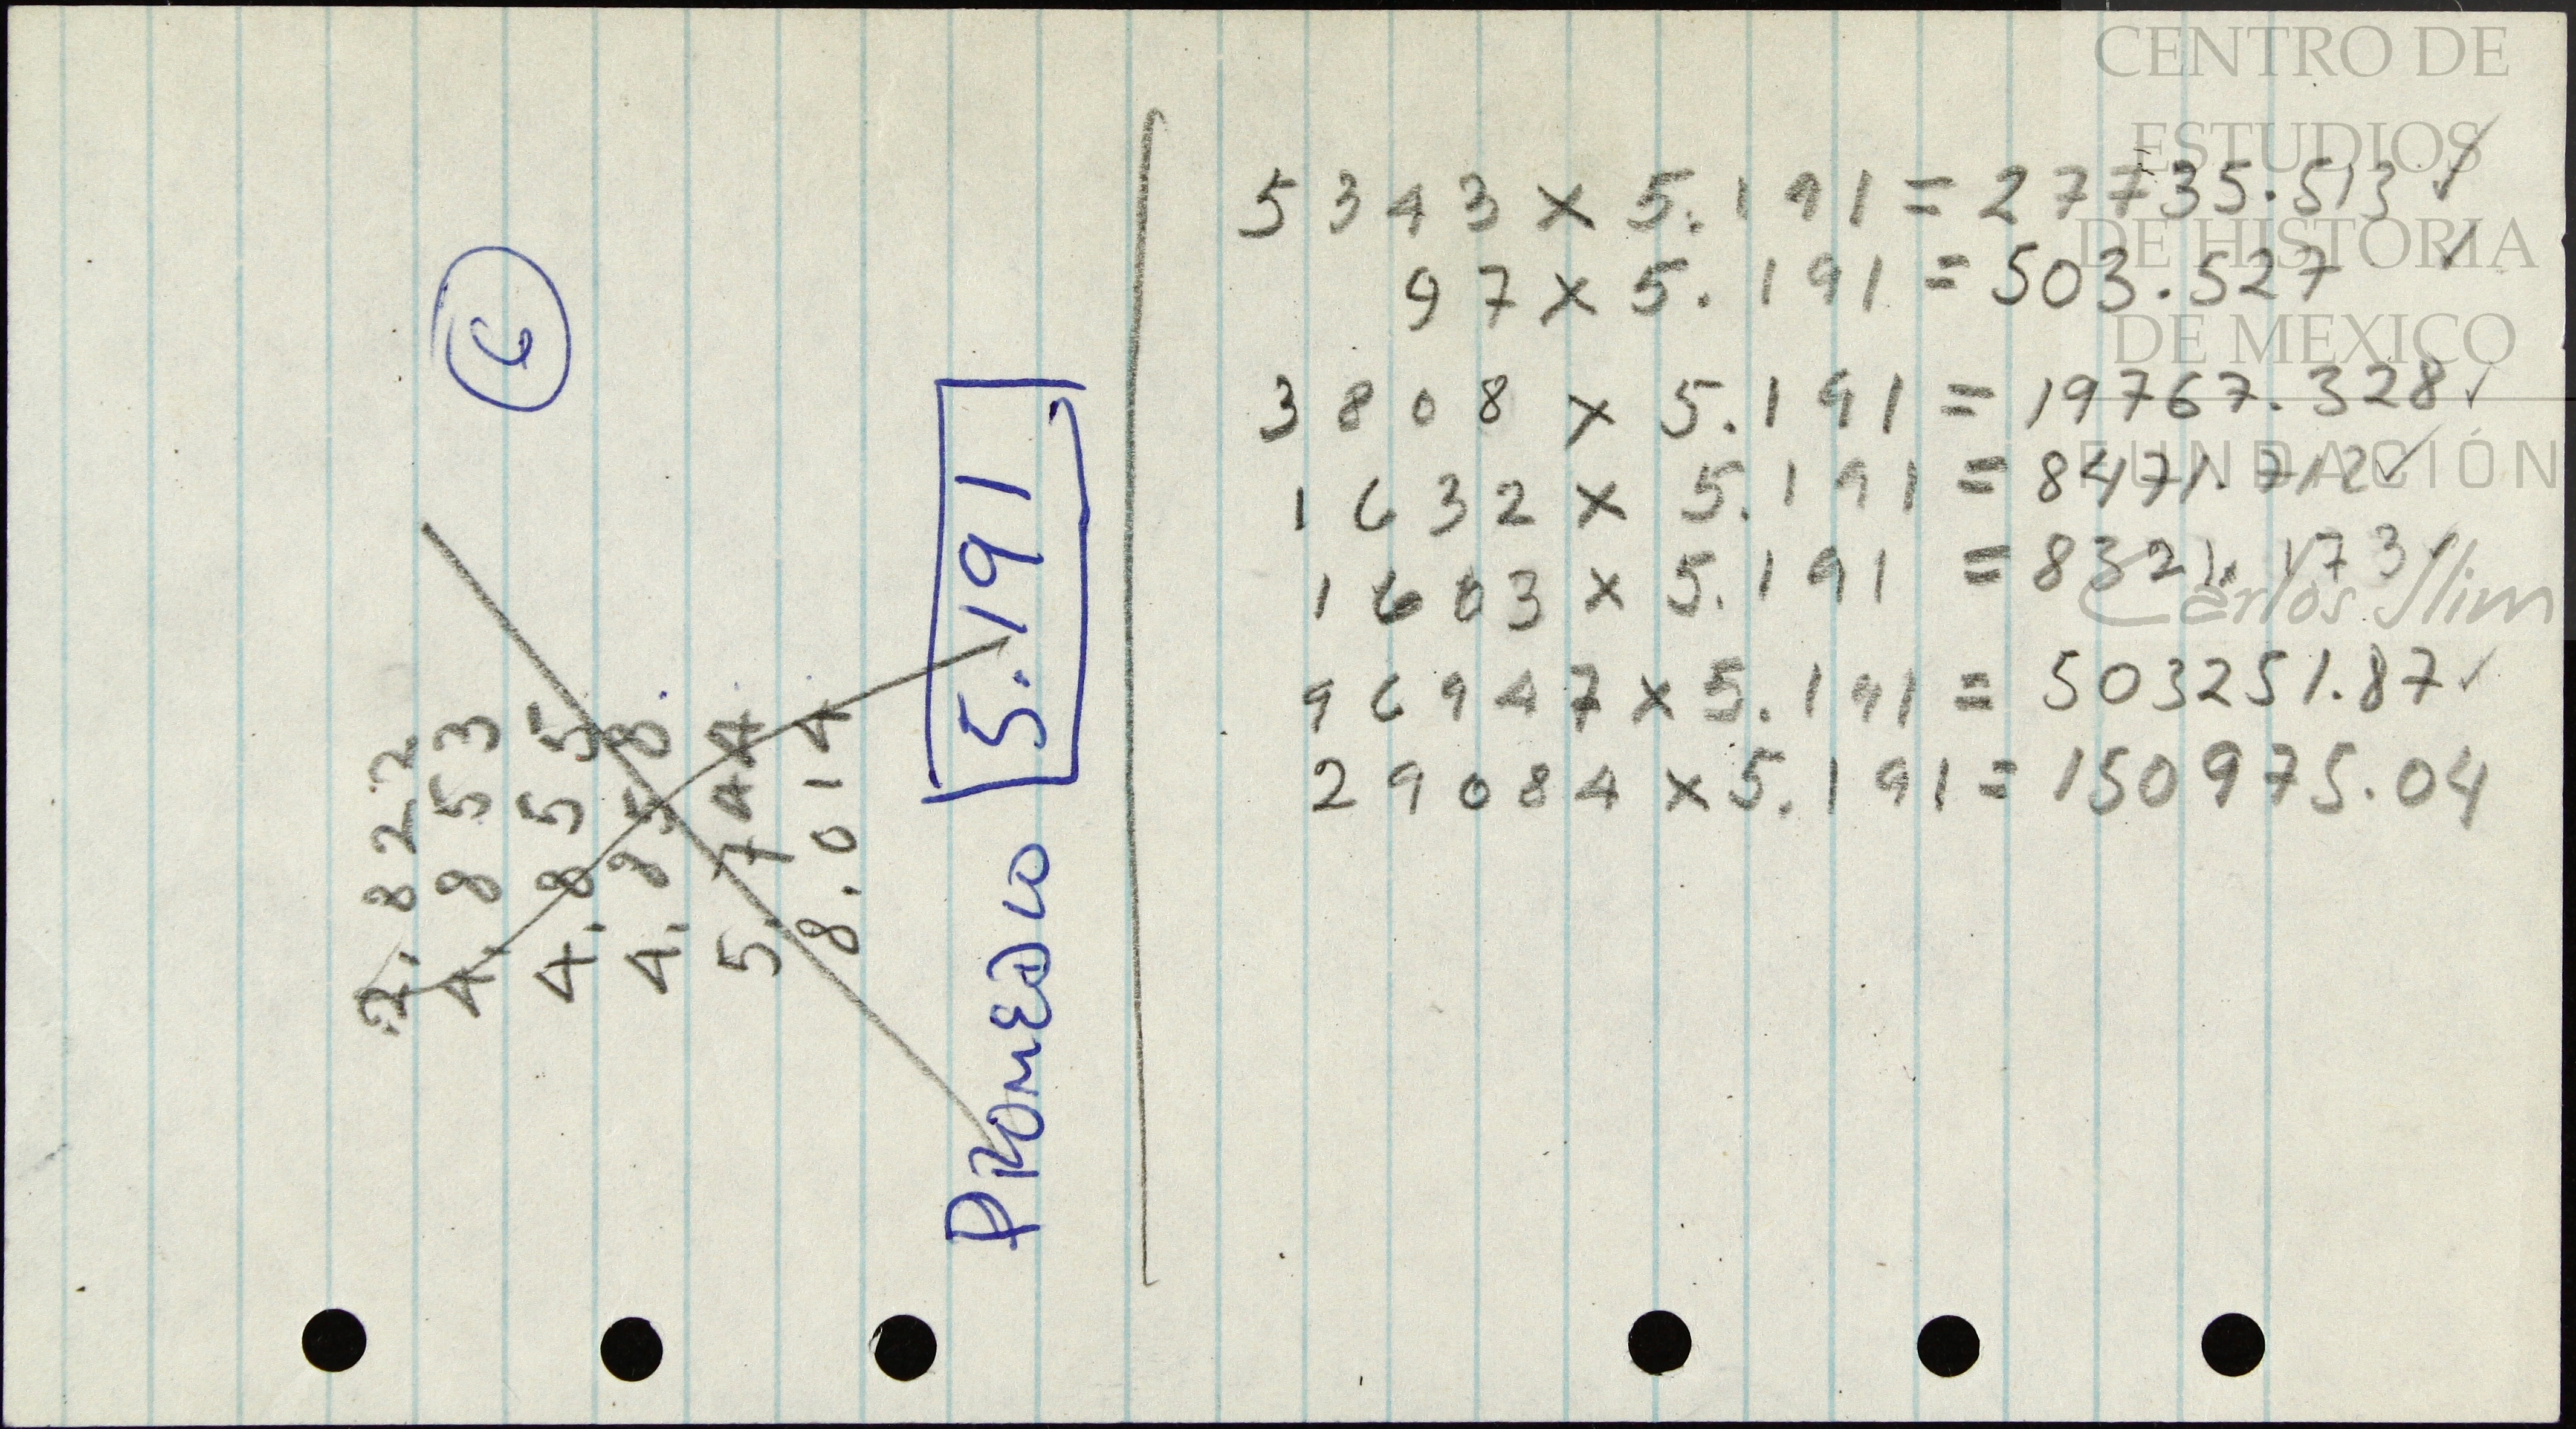 6
2.822
4.853
4.855
4.858
5.744
8.014
PROMEDIO 5.191
5343 x 5.191 = 27735.513 ✓
97 x 5.191 = 503.527 ✓
3808 x 5.191 = 19767.328 ✓
1632 x 5.191 = 8471.712 ✓
1603 x 5.191 = 8321.173 ✓
96947 x 5.191 = 503251.87 ✓
29084 x 5.191 = 150975.04
CENTRO DE
ESTUDIOS
DE HISTORIA
DE MEXICO
FUNDACIÓN
Carlos Slim